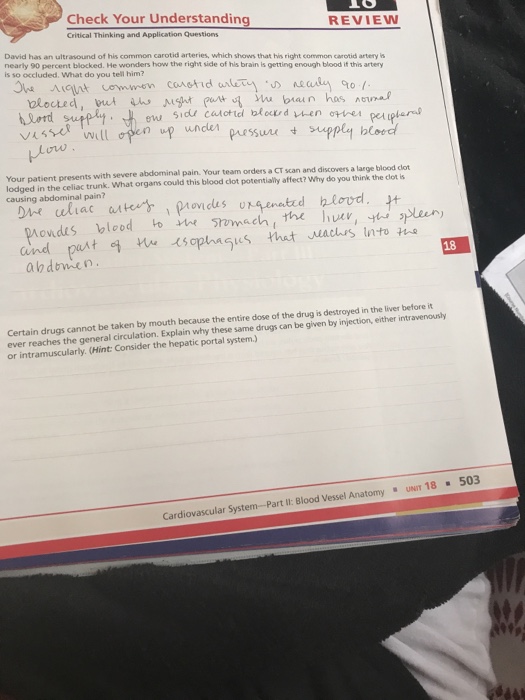 Check Your Understanding
REVIEW
Critical Thinking and Application Questions
David has an ultrasound of his common carotid arteries, which shows that his right common carotid artery is
nearly 90 percent blocked. He wonders how the right side of his brain is getting enough blood if this artery
is so occluded. What do you tell him?
The right common carotid artery is nearly 90%
blocked, but the right part of the brain has normal
blood supply. If one side carotid blocked then other peripheral
vessel will open up under pressure + supply blood
flow.
Your patient presents with severe abdominal pain. Your team orders a CT scan and discovers a large blood clot
lodged in the celiac trunk. What organs could this blood clot potentially affect? Why do you think the clot is
causing abdominal pain?
The celiac artery, provides oxgenated blood. It
provides blood to the stomach, the liver, the spleen,
and part of the esophagus that reaches into the
abdomen.
18
Certain drugs cannot be taken by mouth because the entire dose of the drug is destroyed in the liver before it
ever reaches the general circulation. Explain why these same drugs can be given by injection, either intravenously
or intramuscularly. (Hint: Consider the hepatic portal system.)
Cardiovascular System—Part II: Blood Vessel Anatomy ▪ UNIT 18 ▪ 503